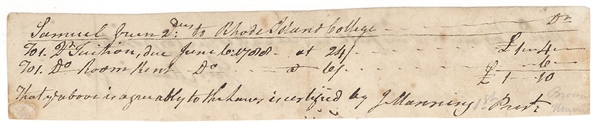 Samuel Green Dr. to Rhode Island College Dr.
To 1. Qr. Tuition, due June 6: 1788 - at 24/ £1 - 4 -
To 1. Do. Room Rent Do. 6/ - 6 -
£ 1 - 10
That ye above is agreeably to the Laws is certified by J Manning Prest.